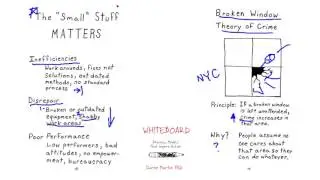 The "Small" Stuff
MATTERS
Inefficiencies
Work arounds, fixes not
solutions, out dated
methods, no standard
process
Disrepair
Broken or outdated
equipment, shabby
work areas
Poor Performance
Low performers, bad
attitudes, no empower-
ment, bureaucracy
WHITEBOARD
Broken Window
Theory of Crime
NYC
Principle: If a broken window
is left unattended,
crime increases in
that area.
Why? People assume no
one cares about
that area so they
can do whatever.